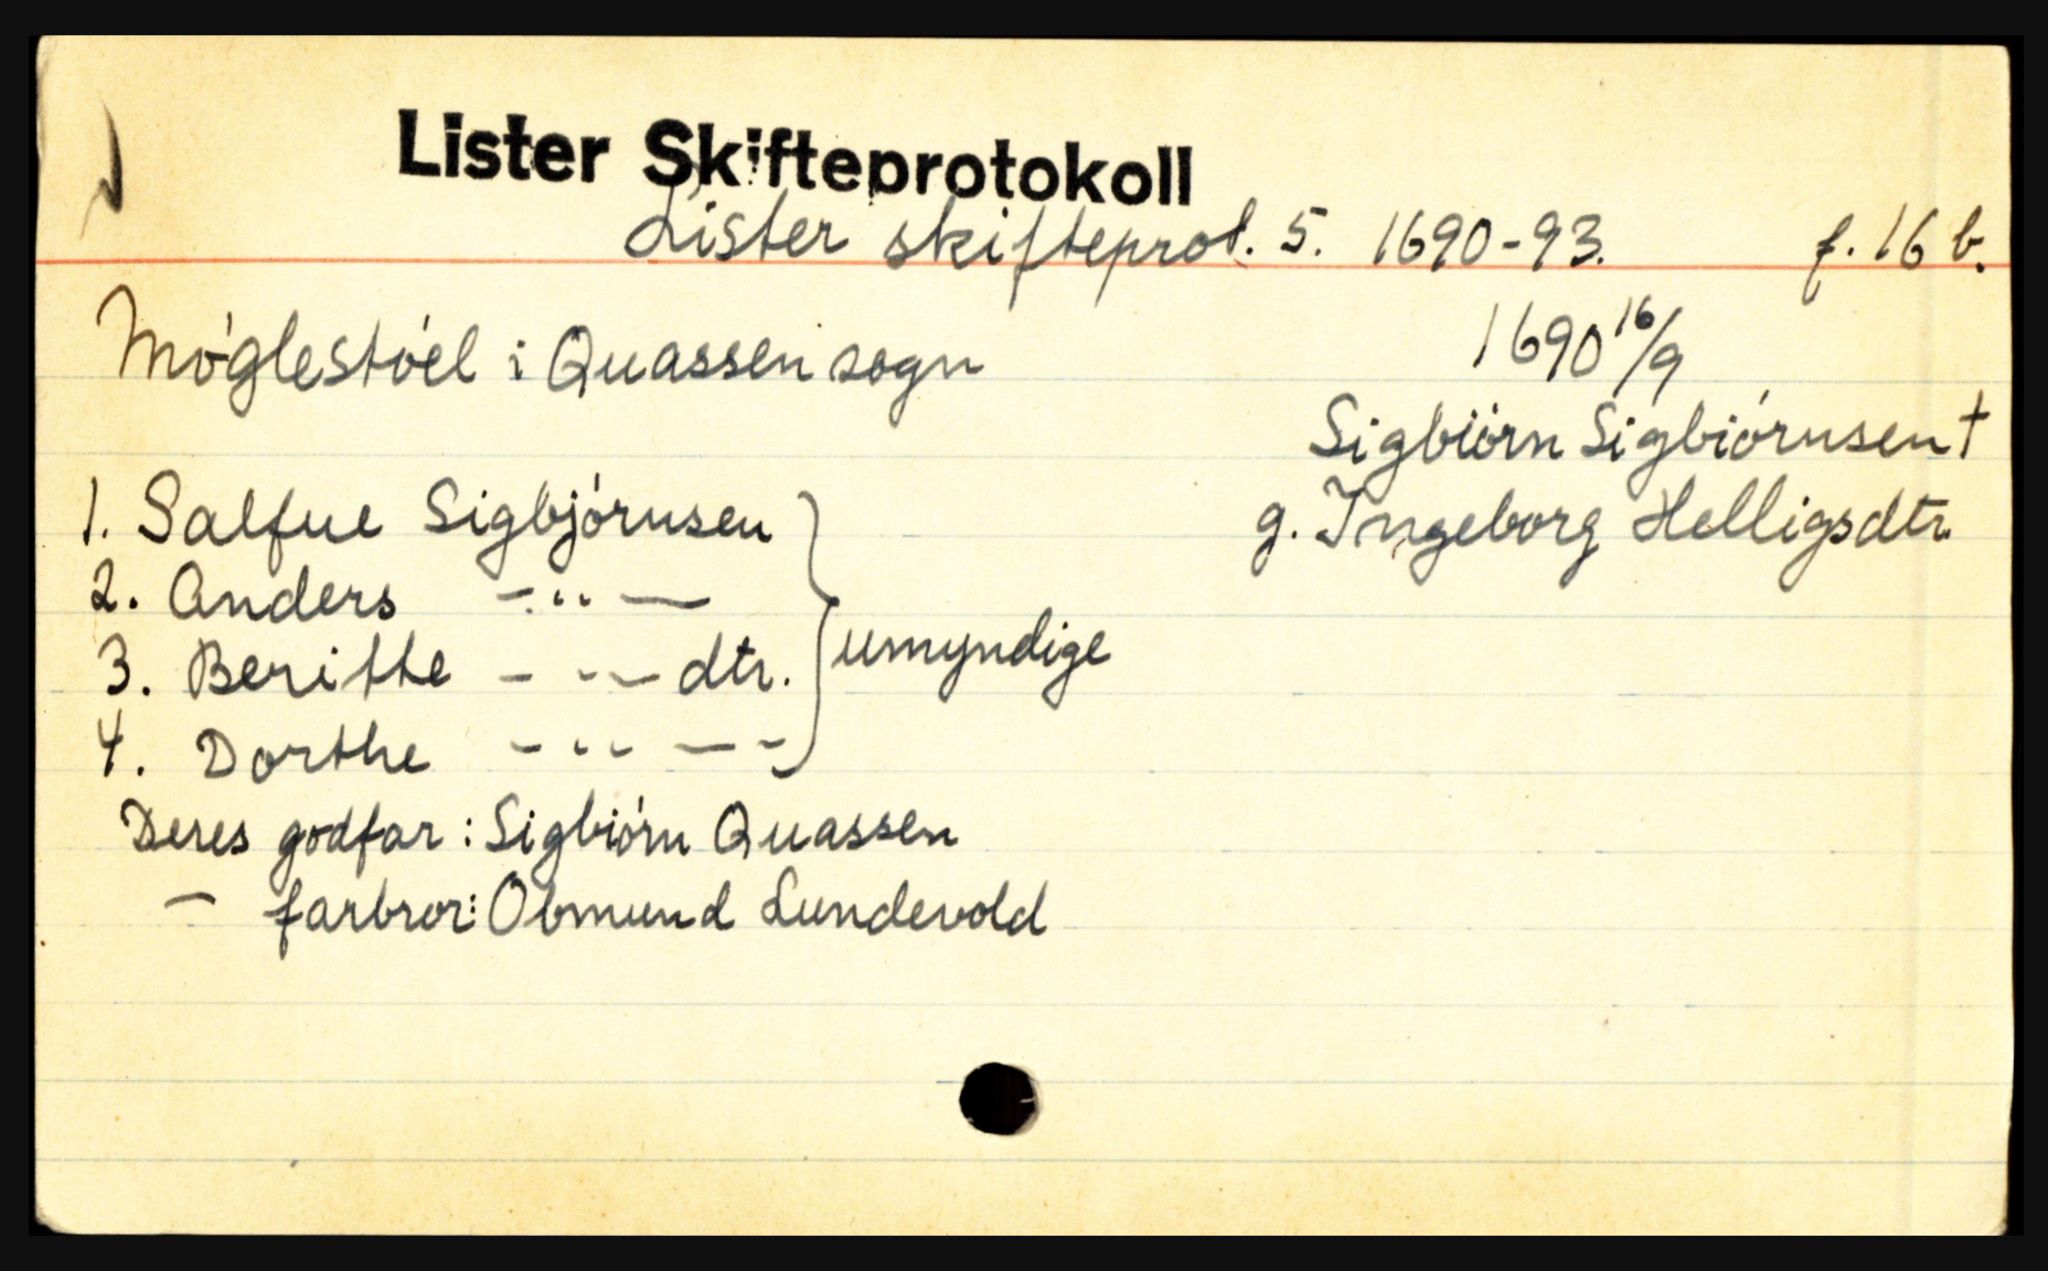 Lister Skifteprotokoll
Lister skifteprot. 5. 1690-93. f. 16 b.
Møglestøel i Quassen sogn 1690 16/9
Sigbiörn Sigbiórnsen †
g. Ingeborg Helligsdtr.
1. Salfue Sigbjórnsen
2. Anders -"-
3. Beritte -"- dtr.
4. Dorthe -"- -
} umyndige
Deres godfar: Sigbiórn Quassen
- farbror: Obmund Lundevold